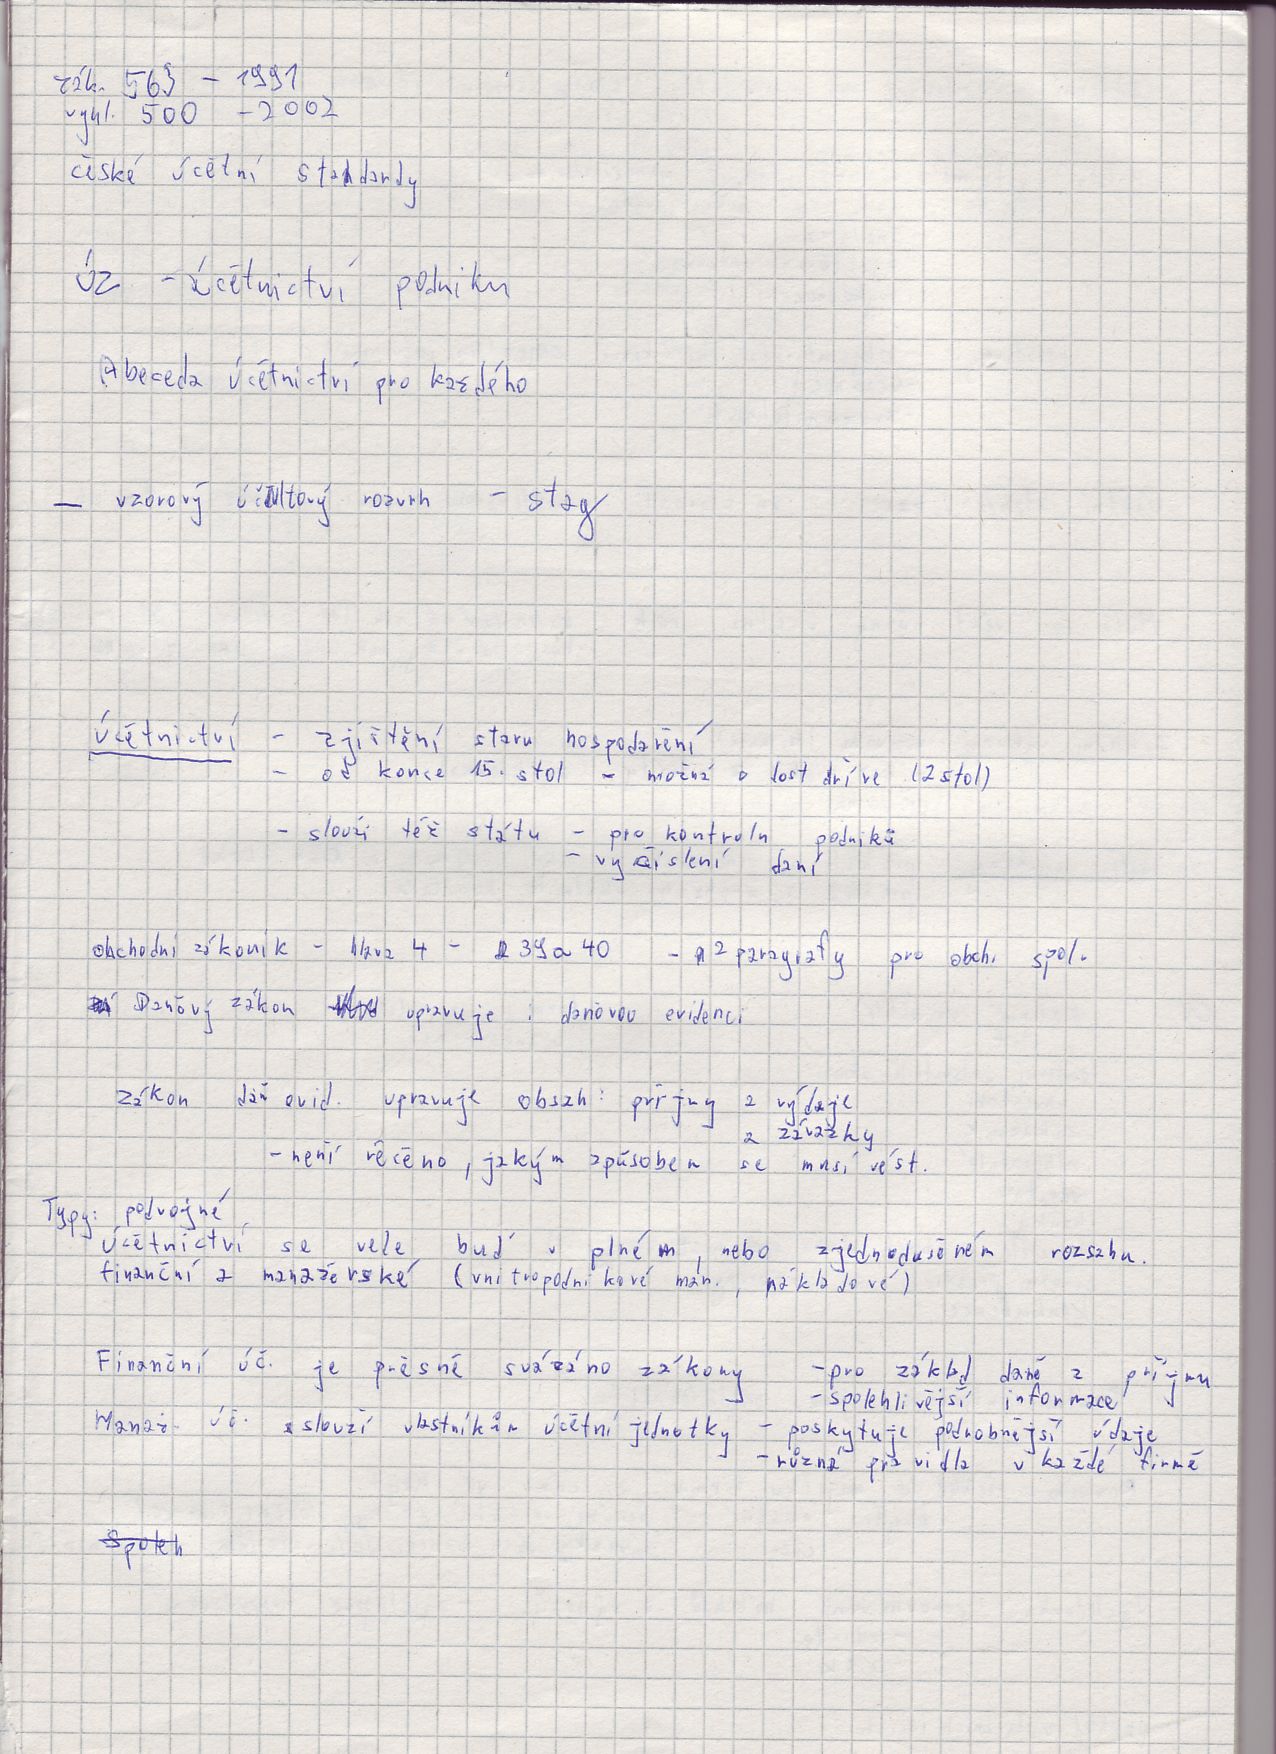 zák. 563 - 1991
vyhl. 500 - 2002
české účetní standardy
ÚZ - účetnictví podniku
Abeceda účetnictví pro každého
- vzorový účtový rozvrh - stag
Účetnictví - zjištění stavu hospodaření
- od konce 15. stol - možná o dost dříve (2 stol)
- slouží též státu - pro kontrolu podniků
- vyčíslení daní
obchodní zákoník - hlava 4 - 39 a 40 - 2 paragrafy pro obch. spol.
Daňový zákon upravuje daňovou evidenci
Zákon daň evid. upravuje obsah: příjmy a výdaje
a závazky
- není řečeno, jakým způsobem se musí vést.
Typy: podvojné
účetnictví se vede buď v plném, nebo zjednodušeném rozsahu.
finanční a manažerské (vnitropodnikové man., nákladové)
Finanční úč. je přesně svázáno zákony - pro základ daně z příjmu
- spolehlivější informace
Manaž. úč. slouží vlastníkům účetní jednotky - poskytuje podrobnější údaje
- různá pravidla v každé firmě
Spoleh